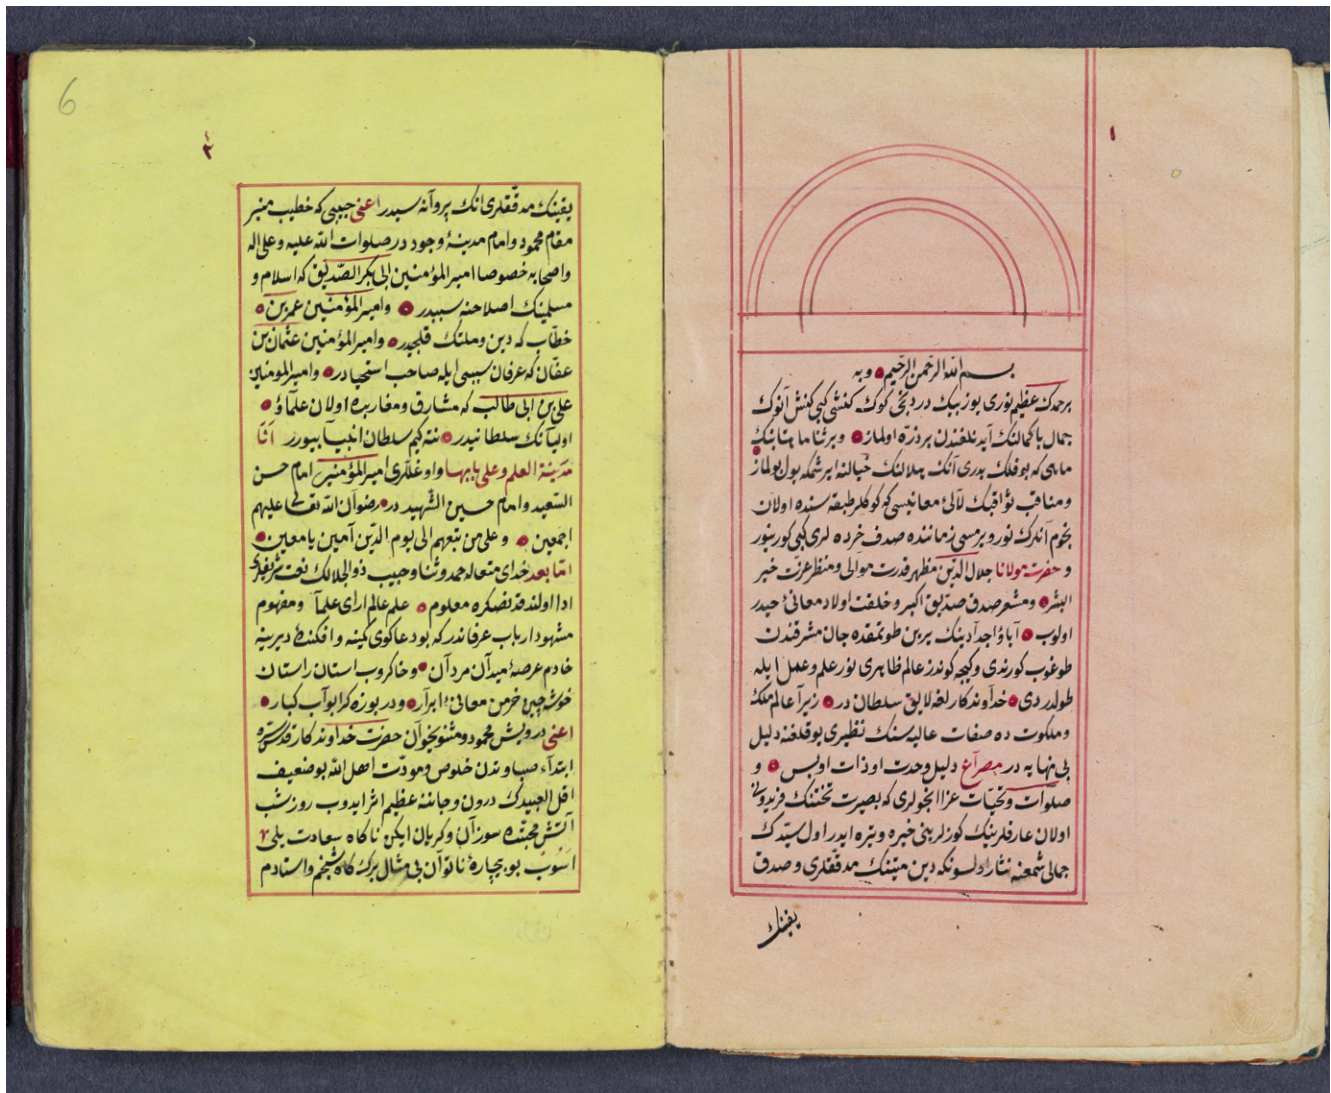 ١
بسم الله الرحمن الرحيم وبه
بر حمدك عظيم نورى يوز بيك در درخى كوك كنشى كبى كنش آنوك
جمال با كمالنك آيد نلغندن بر ذره اولماز وبر ثنا ما هتابنك
ماهى كه بو فلك بدرى آنك هلالنك خيالنه ايرشمكه يول بولماز
ومناقب ثواقبك لآلئ معانيسى كه كوكلر طبقه سنده اولان
نجوم آندرك نور وبرمسى زماننده صدف خرده لرى كبى كورينور
و حضرت مولانا جلال الدين مظهر قدرت موالى ومنظر عزت خير
البشر ومشعر صدق صديق اكبر وخلفت اولاد معانئ حيدر
اولوب آباؤ اجدادينك يرين طوتمقده جان مشرقندن
طوغوب كورندى وكيجه كوندز عالم ظاهرى نور علم وعمل ايله
طولدردى خداوندكارلغه لايق سلطان در زيرا عالم ملك
وملكوت ده صفات عاليه سنك نظيرى يوقلغنه دليل
بى نهايه در مصراع دليل وحدت او ذات اوبس و
صلوات وتحيات عزا انجولرى كه بصيرت تختنك فريدونى
اولان عارفلرينك كوزلرينى خيره وتيره ايدر اول سيدك
جمالى شمعنه نثار اولسونكه دين متينك مدققلرى وصدق
يقينك
6
٢
يقينك مدققلرى انك پروانه سيدر اعنى حبيبى كه خطيب منبر
مقام محمود وامام مدينۀ وجود در صلوات الله عليه وعلى اله
واصحابه خصوصا امير المؤمنين ابى بكر الصديق كه اسلام و
مسلمينك اصلاحنه سببدر وامير المؤمنين عمر بن
خطاب كه دين وملتك قلجيدر وامير المؤمنين عثمان بن
عفان كه عرفان سببى ايله صاحب استحيا در وامير المومنين
على بن ابى طالب كه مشارق ومغاربده اولان علماؤ
اوليآنك سلطانيدر نته كيم سلطان انبيآ بيورر انا
مدينة العلم وعلى بابها واوغللرى امير المؤمنين امام حسن
السعيد وامام حسين الشهيد در رضوان الله تعالى عليهم
اجمعين وعلى من تبعهم الى يوم الدين آمين يا معين
اما بعد خداى متعاله حمد وثنا وحبيب ذو الجلالك نعت شريفلرى
ادا اولندقدنصكره معلوم علم عالم اراى علمآ ومفهوم
مشهود ارباب عرفاندر كه بو دعاكوى كمينه وافكندۀ ديرينه
خادم عرصۀ ميدان مردان وخاكروب استان راستان
خوشه چين خرمن معانئ ابرار ودريوزه كر ابواب كبار
اعنى درويش محمود مثنويخوان حضرت خداوندكار قدس سره
ابتداء صباوتدن خلوص ومودت اهل الله بو ضعيف
اقل العبيدك درون وجاننه عظيم اثر ايدوب روز شب
آتش محبتده سوزان وكريان ايكن ناكاه سعادت يلى
اسوب بو بيچارۀ ناتوان بى مثال برك كاه شيخم واستادم